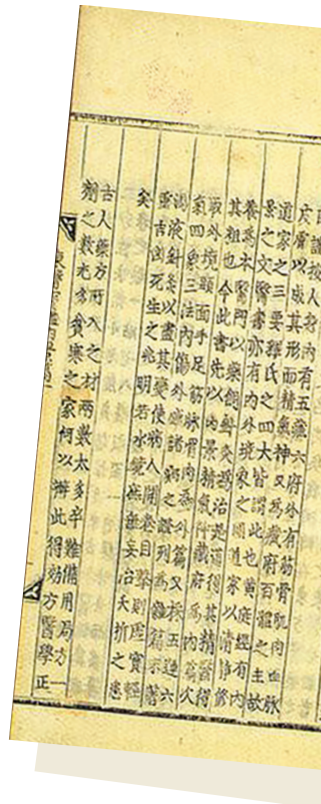 謹按人身內有五臟六府外有筋骨肌肉血脈
皮膚以成其形而精氣神又爲臟府百體之主故
道家之三要釋氏之四大皆謂此也黃庭經有內
景之文醫書亦有內外境象之圖道家以淸靜修
養爲本醫門以藥餌鍼灸爲治是道得其精醫得
其粗也今此書先以內景精氣神臟府爲內篇次
取外境頭面手足筋脈骨肉爲外篇又採五運六
氣四象三法內傷外感諸病之證列爲雜篇末著
湯液鍼灸以盡其變使病人開卷目擊則虛實輕
重吉凶死生之兆明若水鏡庶無妄治夭折之患
矣
古人藥方所入之材兩數太多卒難備用局方一
劑之數尤多貧寒之家何以辦此得効方醫學正